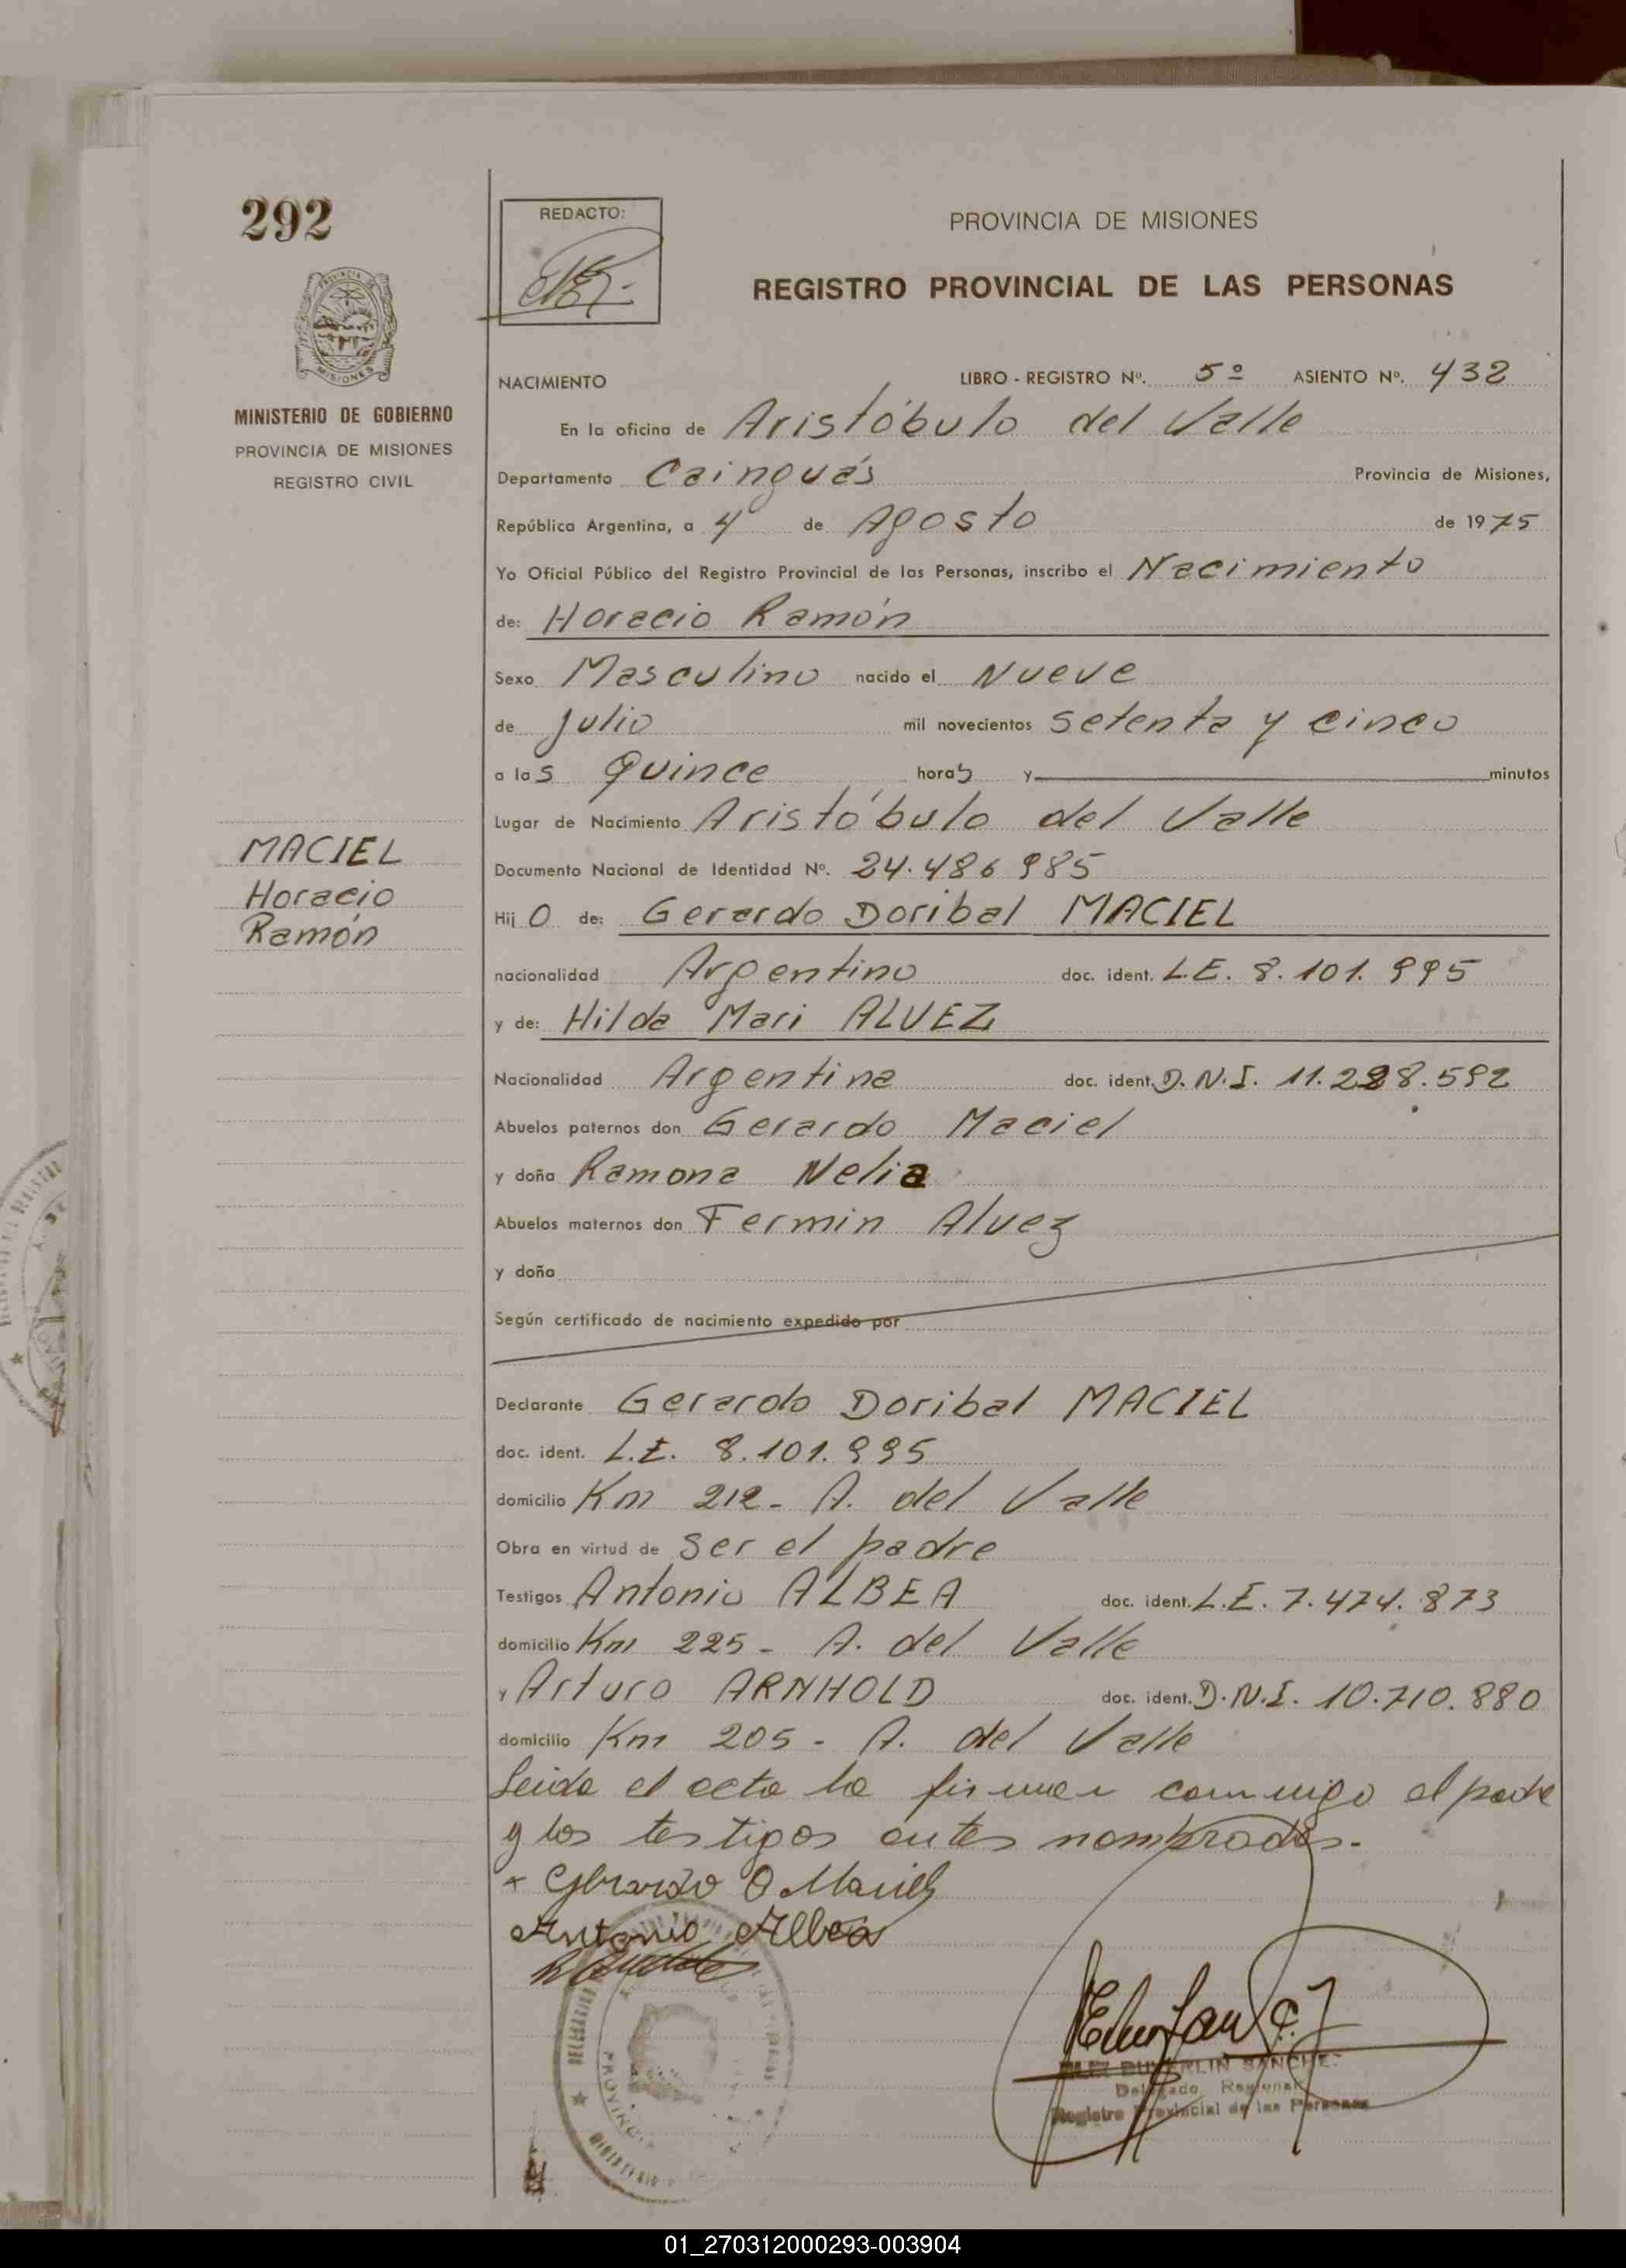 292
REDACTO:
PROVINCIA DE MISIONES
REGISTRO PROVINCIAL DE LAS PERSONAS
MISIONES
MINISTERIO DE GOBIERNO
PROVINCIA DE MISIONES
REGISTRO CIVIL
NACIMIENTO LIBRO - REGISTRO Nº. 5º ASIENTO Nº. 432
En la oficina de Aristóbulo del Valle
Departamento Cainguás Provincia de Misiones,
República Argentina, a 4 de Agosto de 1975
Yo Oficial Público del Registro Provincial de las Personas, inscribo el Nacimiento
de: Horacio Ramón
Sexo Masculino nacido el Nueve
de Julio mil novecientos setenta y cinco
a las Quince horas y minutos
Lugar de Nacimiento Aristóbulo del Valle
MACIEL
Horacio
Ramón
Documento Nacional de Identidad Nº. 24.486 985
Hijo de: Gerardo Doribal MACIEL
nacionalidad Argentino doc. ident. L.E. 8.101.995
y de: Hilda Mari ALVEZ
Nacionalidad Argentina doc. ident. D.N.I. 11.288.592
Abuelos paternos don Gerardo Maciel
y doña Ramona Nelia
Abuelos maternos don Fermin Alvez
y doña
Según certificado de nacimiento expedido por
Declarante Gerardo Doribal MACIEL
doc. ident. L.E. 8.101.995
domicilio Km 212- A. del Valle
Obra en virtud de ser el padre
Testigos Antonio ALBEA doc. ident. L.E. 7.474.873
domicilio Km 225- A. del Valle
y Arturo ARNHOLD doc. ident. D.N.I. 10.710.880
domicilio Km 205- A. del Valle
Leida el acta la firman conmigo el padre
y los testigos antes nombrados.-
Gerardo D Maciel
Antonio Albea
SANCHEZ
Delegado Regional
Registro Provincial de las Personas
PROVINCIA
MINISTERIO
01_270312000293-003904